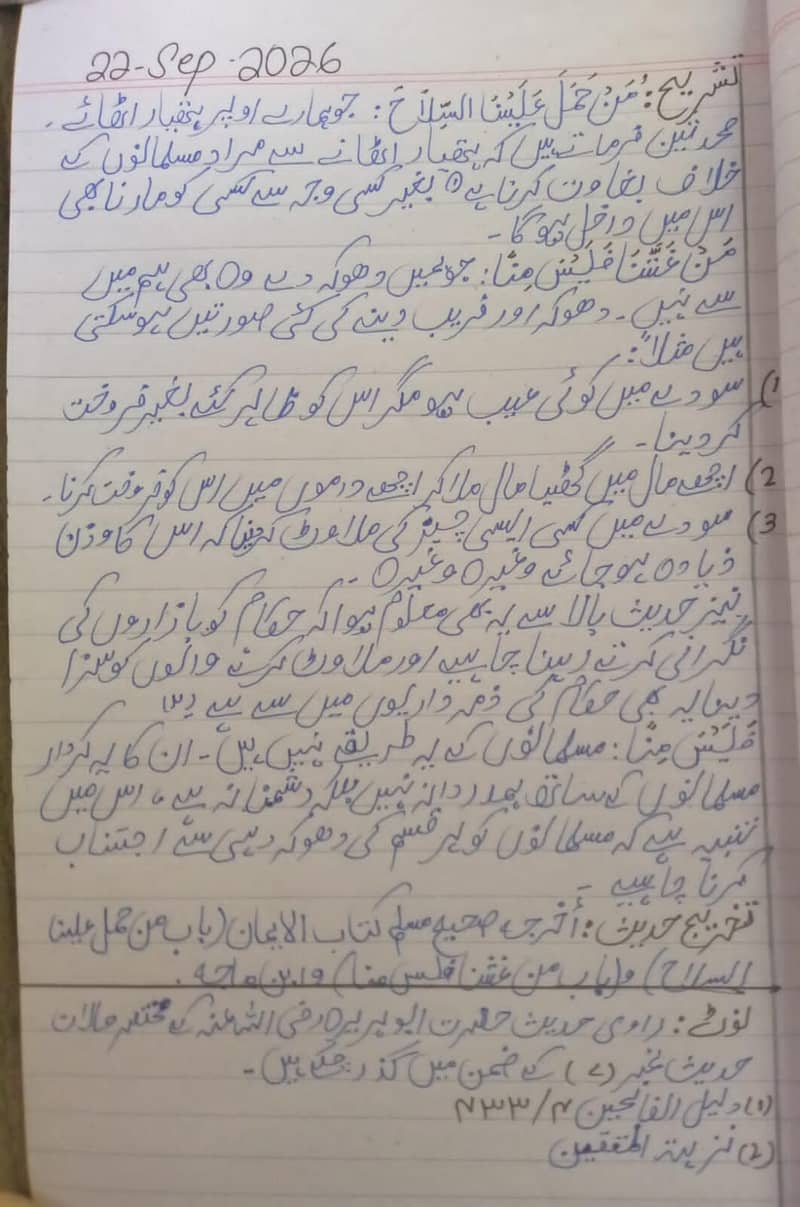 22-Sep-2026
تشریح: مَنْ حَمَلَ عَلَیْنَا السِّلَاحَ: جو ہمارے اوپر ہتھیار اٹھائے۔
محدثین فرماتے ہیں کہ ہتھیار اٹھانے سے مراد مسلمانوں کے
خلاف بغاوت کرنا ہے بغیر کسی وجہ سے کسی کو مارنا بھی
اس میں داخل ہوگا۔
مَنْ غَشَّنَا فَلَیْسَ مِنَّا: جو ہمیں دھوکہ دے وہ بھی ہم میں
سے نہیں۔ دھوکہ اور فریب دینے کی کئی صورتیں ہو سکتی
ہیں مثلاً:
1) سودے میں کوئی عیب ہو مگر اس کو ظاہر کئے بغیر فروخت
کر دینا۔
2) اچھے مال میں گھٹیا مال ملا کر اچھے داموں میں اس کو فروخت کرنا۔
3) سودے میں کسی ایسی چیز کی ملاوٹ کر دینا کہ اس کا وزن
زیادہ ہو جائے وغیرہ وغیرہ۔
نیز حدیث بالا سے یہ بھی معلوم ہوا کہ حکام کو بازاروں کی
نگرانی کرتے رہنا چاہیے اور ملاوٹ کرنے والوں کو سزا
دینا یہ بھی حکام کی ذمہ داریوں میں سے ہے
فَلَیْسَ مِنَّا: مسلمانوں کے یہ طریقے نہیں ہیں۔ ان کا یہ کردار
مسلمانوں کے ساتھ ہمدردانہ نہیں بلکہ دشمنانہ ہے، اس میں
تنبیہ ہے کہ مسلمانوں کو ہر قسم کی دھوکہ دہی سے اجتناب
کرنا چاہیے۔
تخریج حدیث: أخرجہ صحیح مسلم کتاب الایمان (باب من حمل علینا
السلاح) و(باب من غشنا فلیس منا) و ابن ماجہ۔
نوٹ: راوی حدیث حضرت ابوہریرہ رضی اللہ عنہ کے مختصر حالات
حدیث نمبر (۷) کے ضمن میں گذر چکے ہیں۔
(1) دلیل الفالحین ۴/۴۳۳
(2) نزہتہ المتقین